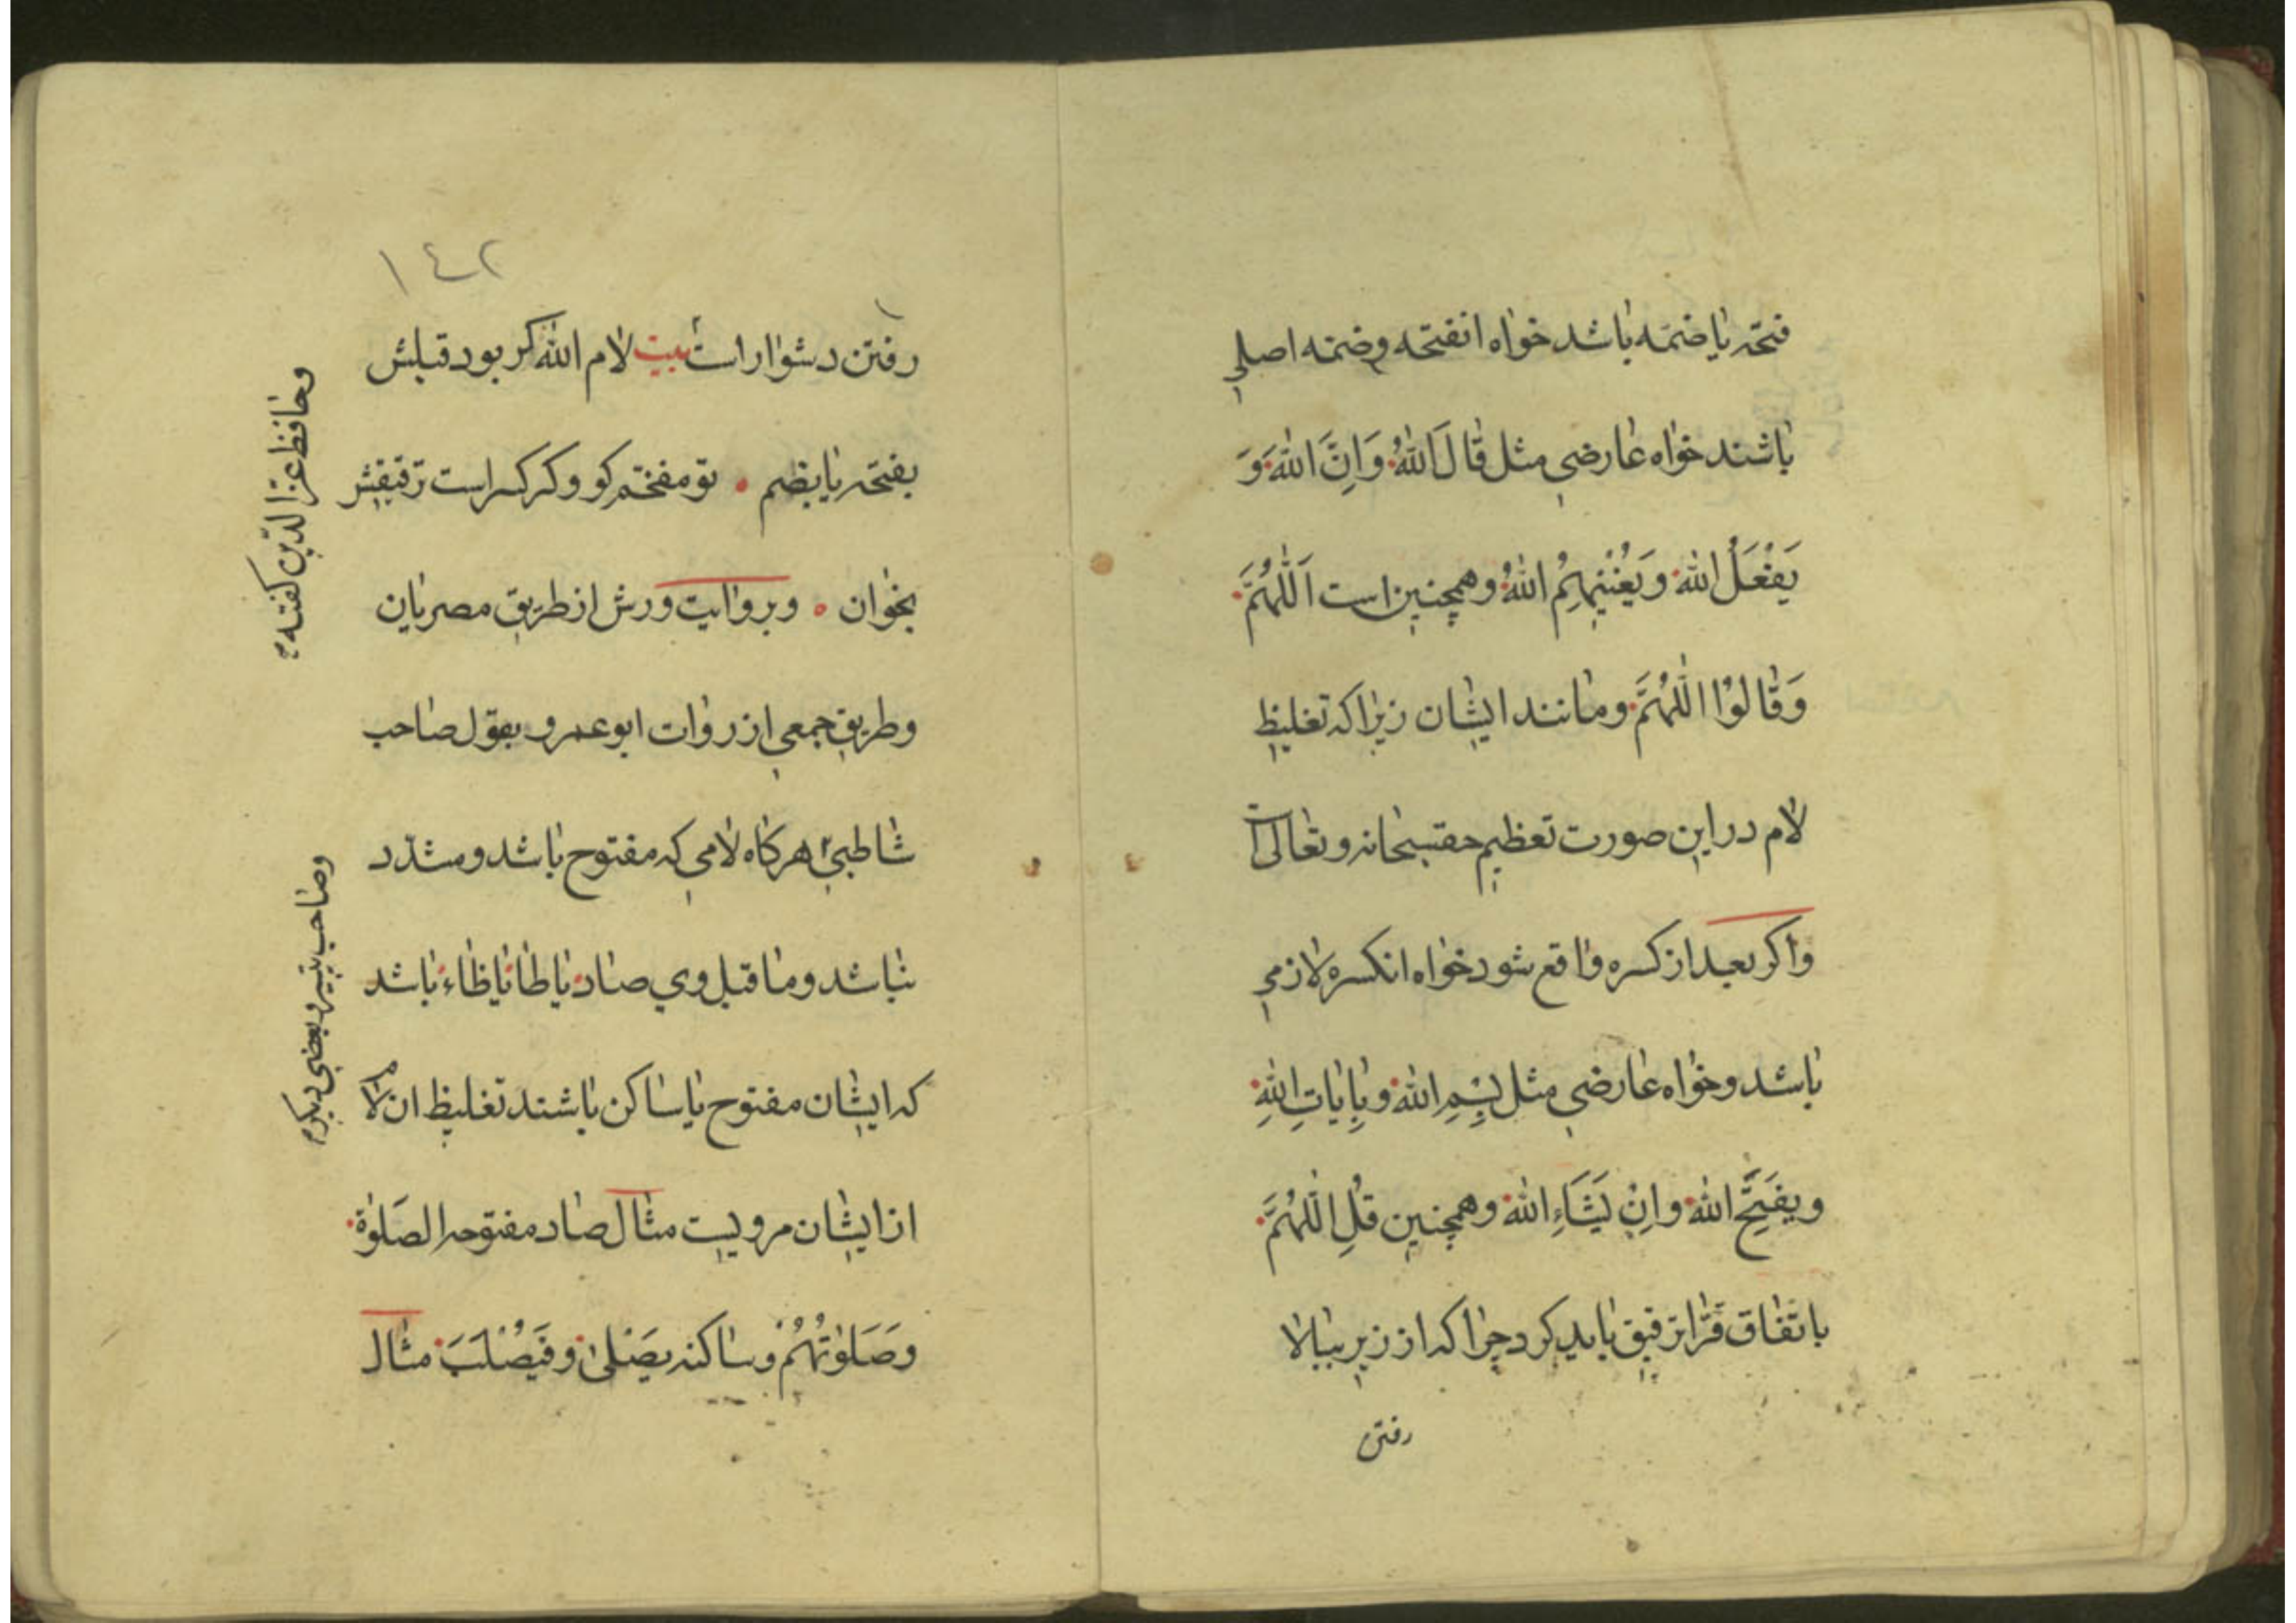 فتحه یا ضمّه باشد خواه انفتحه وضمّه اصلی
باشند خواه عارضی مثل قَالَ اللّٰهُ وَاِنَّ اللّٰهَ وَ
یَفْعَلُ اللّٰه وَیُغْنِیهِمُ اللّٰهُ وهمچنین است اَللّٰهُمَّ
وَقَالُوْا اللّٰهُمَّ ومانند ایشان زیراکه تغلیظ
لام در این صورت تعظیم حقسبحانه وتعالی است
واکر بعد از کسره واقع شود خواه انکسره لازمی
باشد وخواه عارضی مثل بِسْمِ اللّٰه وبِاٰیَاتِ اللّٰهِ
ویفَتَحِ اللّٰه واِنْ یَشَاءِ اللّٰه وهمچنین قُلِ اللّٰهُمَّ
باتّفاق قرّا ترقیق باید کرد چرا که از زیر ببالا
رفتن
١٤٢
رفتن دشوار است بیت لام اللّٰه کر بود قبلش
بفتحه یا بضم تو مفخّم کو وکر کسر است ترقیقش
بخوان وبروایت ورش از طریق مصریان
وطریق جمعی از روات ابوعمرو بقول صاحب
شاطبی هرکاه لامی که مفتوح باشد ومشدّد
نباشد وما قبل وی صاد یا طا یا ظاء باشد
که ایشان مفتوح یا ساکن باشند تغلیظ ان لام
از ایشان مرویست مثال صاد مفتوحه الصَلوٰة
وصَلَوٰتُهُمْ وساکنه یصَْلیٰ وفَیُصْلَبَ مثال
وحافظ عزّ الدّین کفته
وصاحب تیسیر وبعضی دیکر